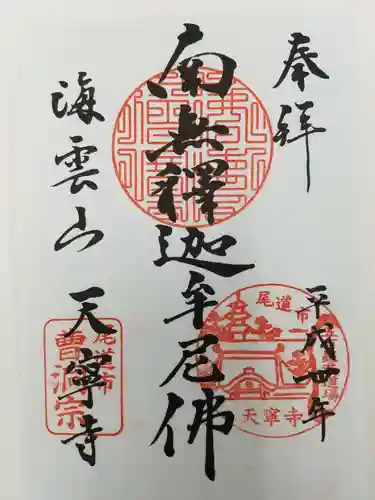 奉拜
平成卅年
南無釋迦牟尼佛
海雲山 天寧寺
尾道市
天寧寺
尾道市
曹洞宗